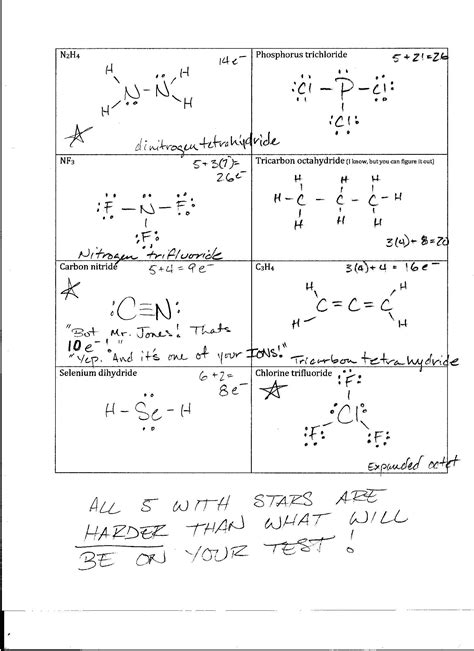 N2H4 14 e-
H H
N-N
H H
dinitrogen tetrahydride
Phosphorus trichloride 5+21=26
:Cl - P - Cl:
:Cl:
NF3 5+3(7)=
26e-
:F - N - F:
:F:
Nitrogen trifluoride
Tricarbon octahydride (I know, but you can figure it out)
H H H
H-C-C-C-H
H H H
3(4)+8=20
Carbon nitride 5+4=9e-
:C≡N:
"But Mr. Jones! Thats
10 e-!"
"Yep. And it's one of your IONS!"
C3H4 3(4)+4=16e-
H H
C=C=C
H H
Tricarbon tetrahydride
Selenium dihydride 6+2=
8e-
H-Se-H
Chlorine trifluoride
:F:
Cl
:F F:
Expanded octet
ALL 5 WITH STARS ARE
HARDER THAN WHAT WILL
BE ON YOUR TEST!